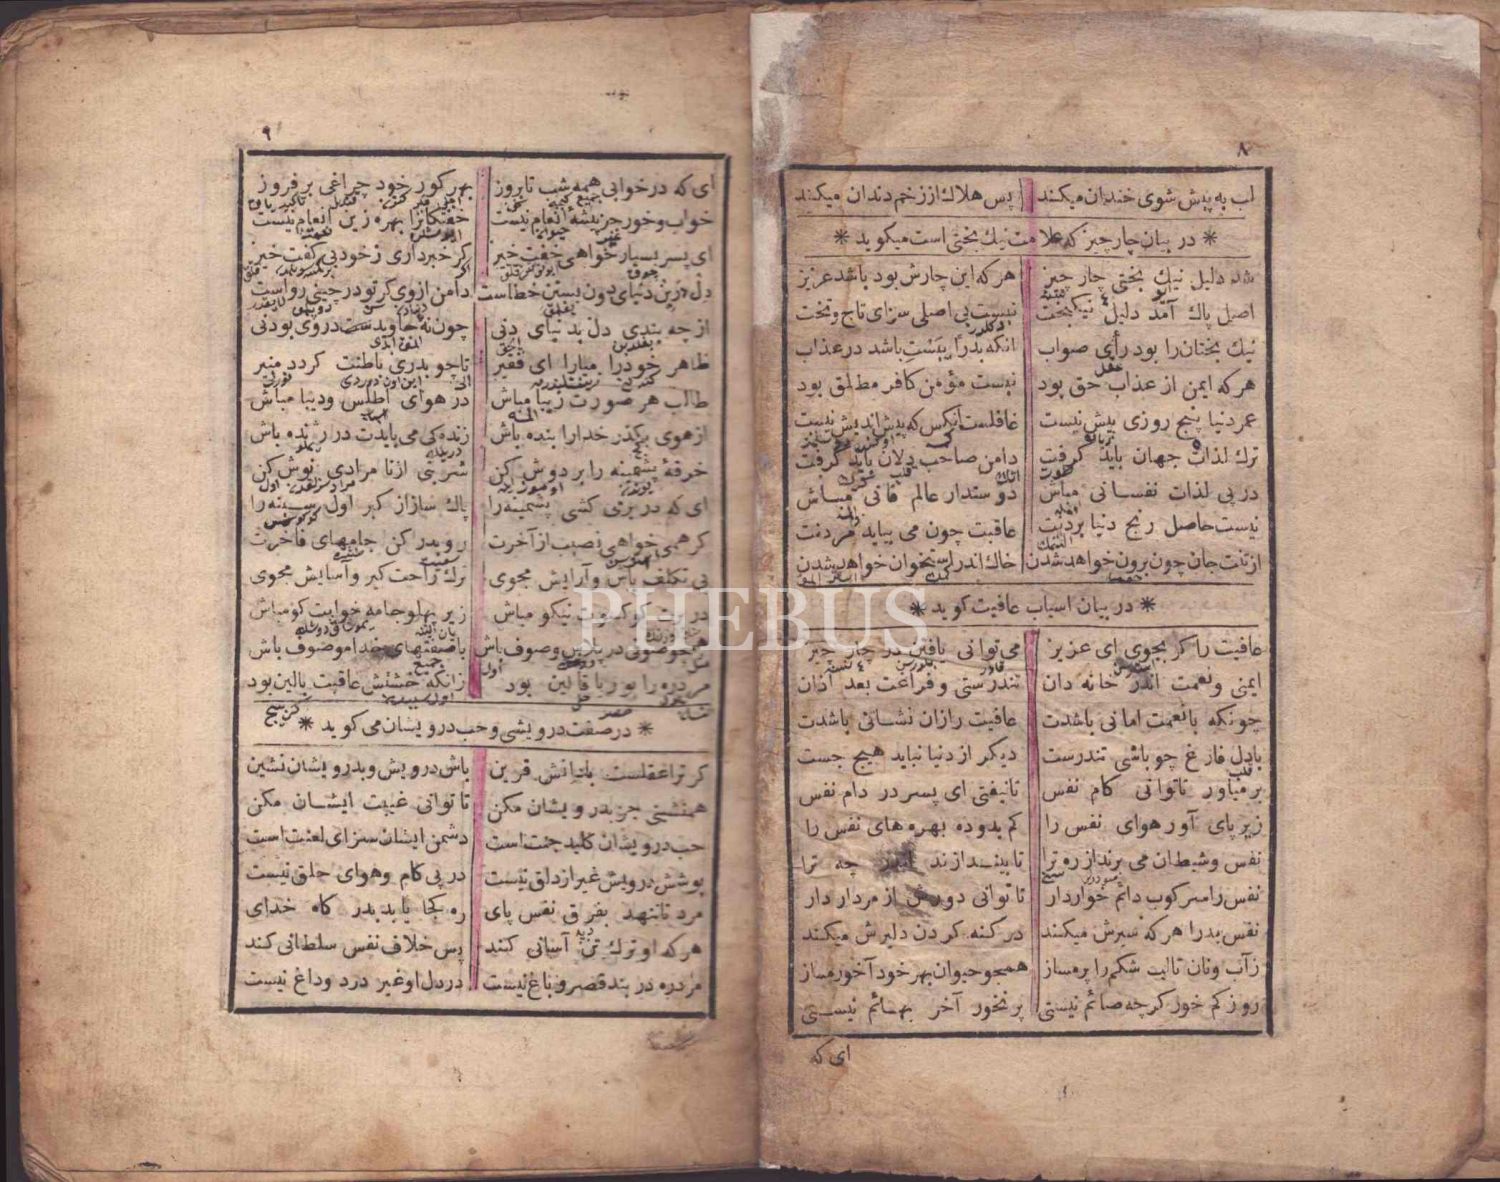 ٨
لب به پیش شوی خندان میکند پس هلاك از زخم دندان میکند
* در بیان چار چیز که علامت نیك بختی است میکوید *
شد دلیل نیك بختی چار چیز هر که این چارش بود باشد عزیز
اصل پاك آمد دلیل نیکبخت نیست بی اصلی سزای تاج و تخت
نیك بختان را بود رأی صواب انکه بد رأیست باشد در عذاب
هر که ایمن از عذاب حق بود نیست مؤمن کافر مطلق بود
عمر دنیا پنج روزی بیش نیست غافلست آنکس که پیش اندیش نیست
ترك لذات جهان باید کرفت دامن صاحب دلان باید کرفت
در پی لذات نفسانی مباش دوستدار عالم فانی مباش
نیست حاصل رنج دنیا بردنت عاقبت چون می بباید مردنت
از تنت جان چون برون خواهد شدن خاك اندر استخوان خواهد شدن
* در بیان اسباب عافیت کوید *
عافیت را کر بجوی ای عزیز می توانی یافتن در چار چیز
ایمنی و نعمت اندر خانه دان تندرستی و فراغت بعد ازان
چونکه با نعمت امانی باشدت عافیت را زان نشانی باشدت
با دل فارغ چو باشی تندرست دیکر از دنیا نباید هیچ جست
بر میاور تا توانی کام نفس تا نیفتی ای پسر در دام نفس
زیر پای آور هوای نفس را کم بدو ده بهره های نفس را
نفس و شیطان می برند از ره ترا تا بیندازند اندر چه ترا
نفس را سر کوب دائم خوار دار تا توانی دورش از مردار دار
نفس بد را هر که سیرش میکند در کنه کردن دلیرش میکند
ز آب و نان تا لب شکم را پر مساز همچو حیوان بهر خود آخور مساز
روز کم خور کرچه صائم نیستی پر نخور آخر بهائم نیستی
ای که
٩
ای که در خوابی همه شب تا بروز بهر کور خود چراغی بر فروز
خواب و خور جز پیشۀ انعام نیست خفتکانرا بهره زین انعام نیست
ای پسر بسیار خواهی خفت خیز کر خبر داری ز خود بی کفت خیز
دل درین دنیای دون بستن خطاست دامن از وی کر تو در چینی رواست
از چه بندی دل بدنیای دنی چون نه جاوید ست در وی بودنی
ظاهر خود را میارا ای فقیر تا چو بدری باطنت کردد منیر
طالب هر صورت زیبا مباش در هوای اطلس و دیبا مباش
از هوی بکذر خدا را بنده باش زنده کی می بایدت در ژنده باش
خرقۀ پشمینه را بر دوش کن شربتی از نا مرادی نوش کن
ای که در بر می کشی پشمینه را پاك ساز از کبر اول سینه را
کر همی خواهی نصیب از آخرت رو بدر کن جامهای فاخرت
بی تکلف باش و آرایش مجوی ترك راحت کیر و آسایش مجوی
در برت کو کسوت نیکو مباش زیر پهلو جامه خوابت کو مباش
همچو صوفی در پلاس و صوف باش با صفتهای خدا موصوف باش
مرد ره را بوریا قالین بود زانکه خشتش عاقبت بالین بود
* در صفت درویشی و حب درویشان می کوید *
کر ترا عقلست با دانش قرین باش درویش و بدرویشان نشین
همنشینی جز بدرویشان مکن تا توانی غیبت ایشان مکن
حب درویشان کلید جنت است دشمن ایشان سزای لعنت است
پوشش درویش غیر از دلق نیست در پی کام و هوای حلق نیست
مرد تا ننهد بفرق نفس پای ره کجا یابد بدر کاه خدای
هر که او ترك تن آسانی کند پس خلاف نفس سلطانی کند
مرد ره در بند قصر و باغ نیست در دل او غیر درد و داغ نیست
PHEBUS